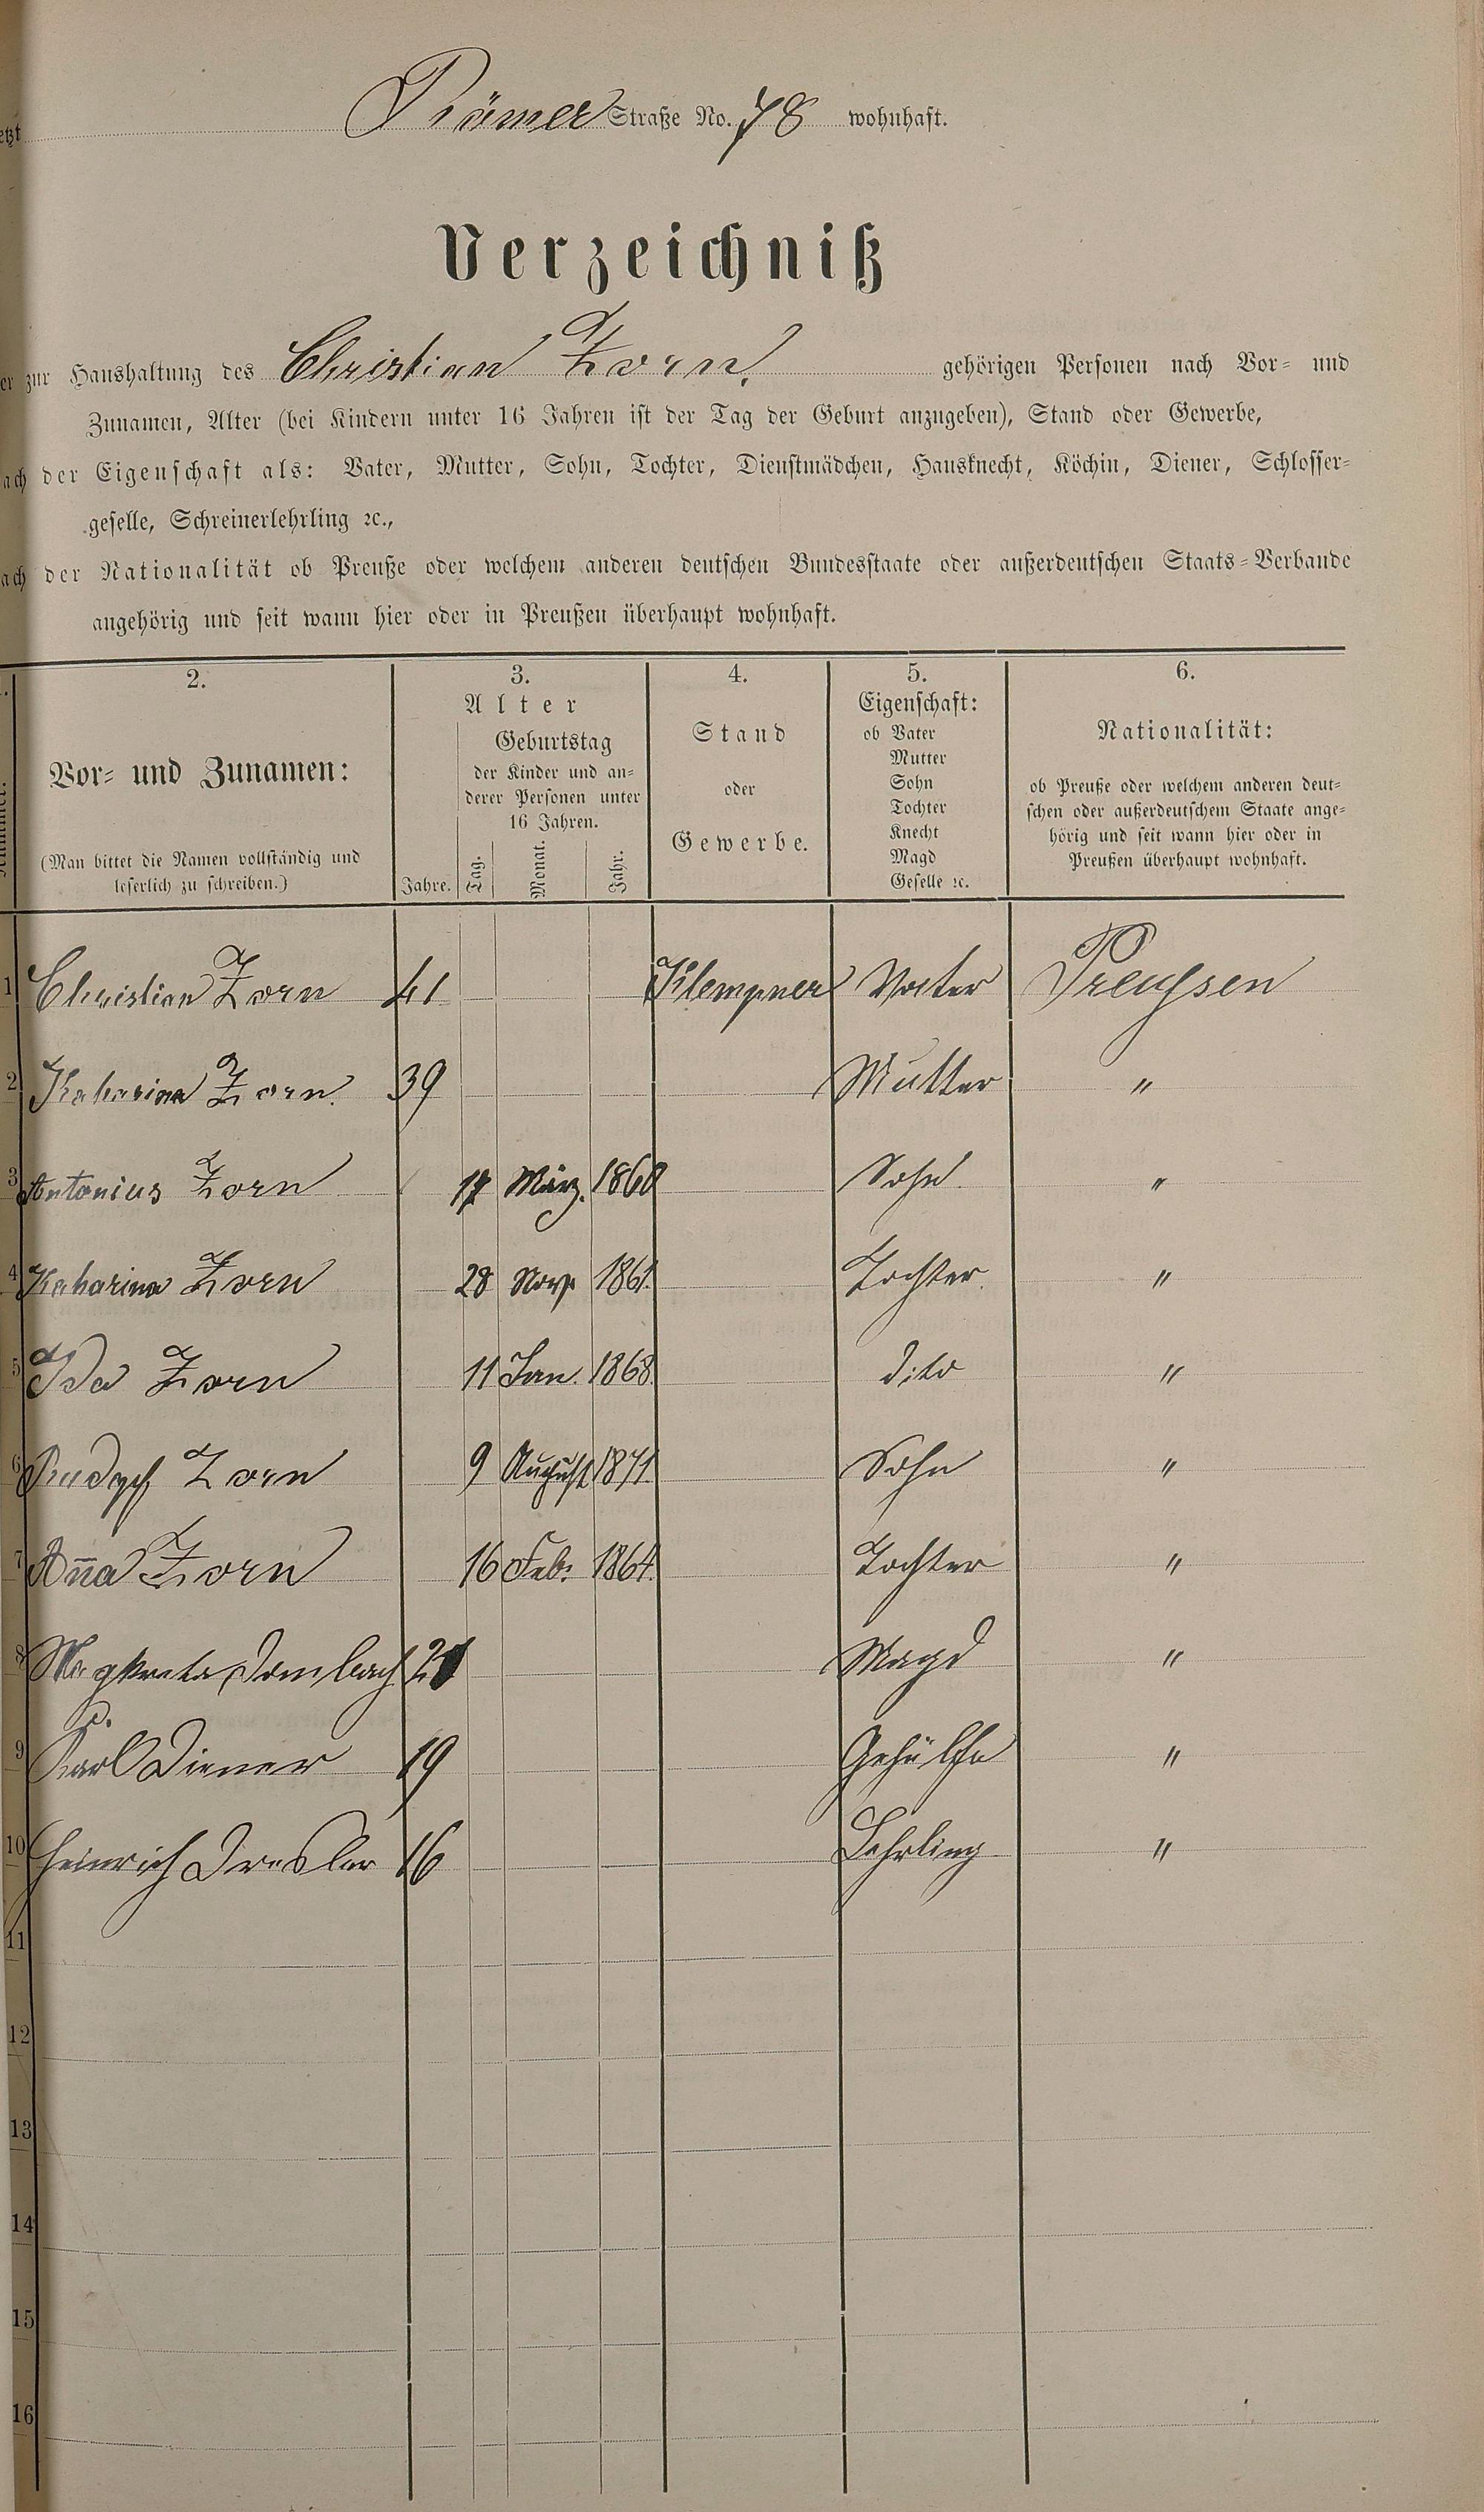 etzt Römer Straße No. 78 wohnhaft.
Verzeichniß
er zur Haushaltung des Christian Zorn. gehörigen Personen nach Vor- und
Zunamen, Alter (bei Kindern unter 16 Jahren ist der Tag der Geburt anzugeben), Stand oder Gewerbe,
ach der Eigenschaft als: Vater, Mutter, Sohn, Tochter, Dienstmädchen, Hausknecht, Köchin, Diener, Schlosser-
geselle, Schreinerlehrling ꝛc.,
ach der Nationalität ob Preuße oder welchem anderen deutschen Bundesstaate oder außerdeutschen Staats-Verbande
angehörig und seit wann hier oder in Preußen überhaupt wohnhaft.
2.
Vor- und Zunamen:
(Man bittet die Namen vollständig und
leserlich zu schreiben.)
3.
Alter
Jahre.
Geburtstag
der Kinder und an-
derer Personen unter
16 Jahren.
Tag.
Monat.
Jahr.
4.
Stand
oder
Gewerbe.
5.
Eigenschaft:
ob Vater
Mutter
Sohn
Tochter
Knecht
Magd
Geselle ꝛc.
6.
Nationalität:
ob Preuße oder welchem anderen deut-
schen oder außerdeutschem Staate ange-
hörig und seit wann hier oder in
Preußen überhaupt wohnhaft.
1 Christian Zorn 41 Klempner Vater Preußsen
2 Kaharina Zorn. 39 Mutter "
3 Antonius Zorn 17 März. 1860 Sohn "
4 Kaharina Zorn 28 Nov. 1861. Tochter "
5 Ida Zorn 11 Jan. 1868. dito "
6 Zorn 9 August 1871. Sohn "
7 Ana Zorn 16 Feb. 1864. Tochter "
8 Dombach 21 Magd "
9 Karl Diener 19 Gehülfe "
10 Heinrich Dresler 16 Lehrling "
11
12
13
14
15
16